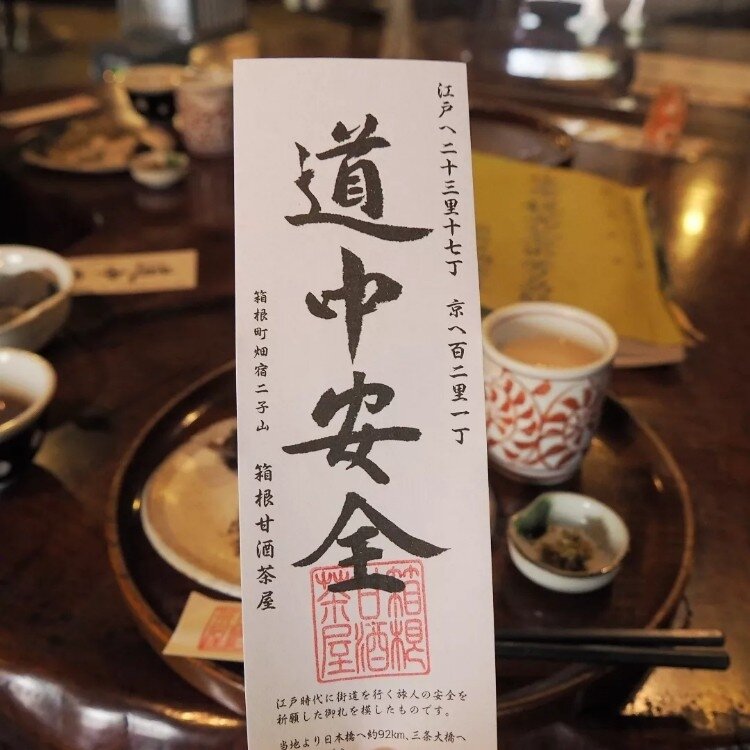 江戸へ二十三里十七丁 京へ百二里一丁
道中安全
箱根町畑宿二子山 箱根甘酒茶屋
箱根
甘酒
茶屋
江戸時代に街道を行く旅人の安全を
祈願した御札を模したものです。
当地より日本橋へ約92km、三条大橋へ